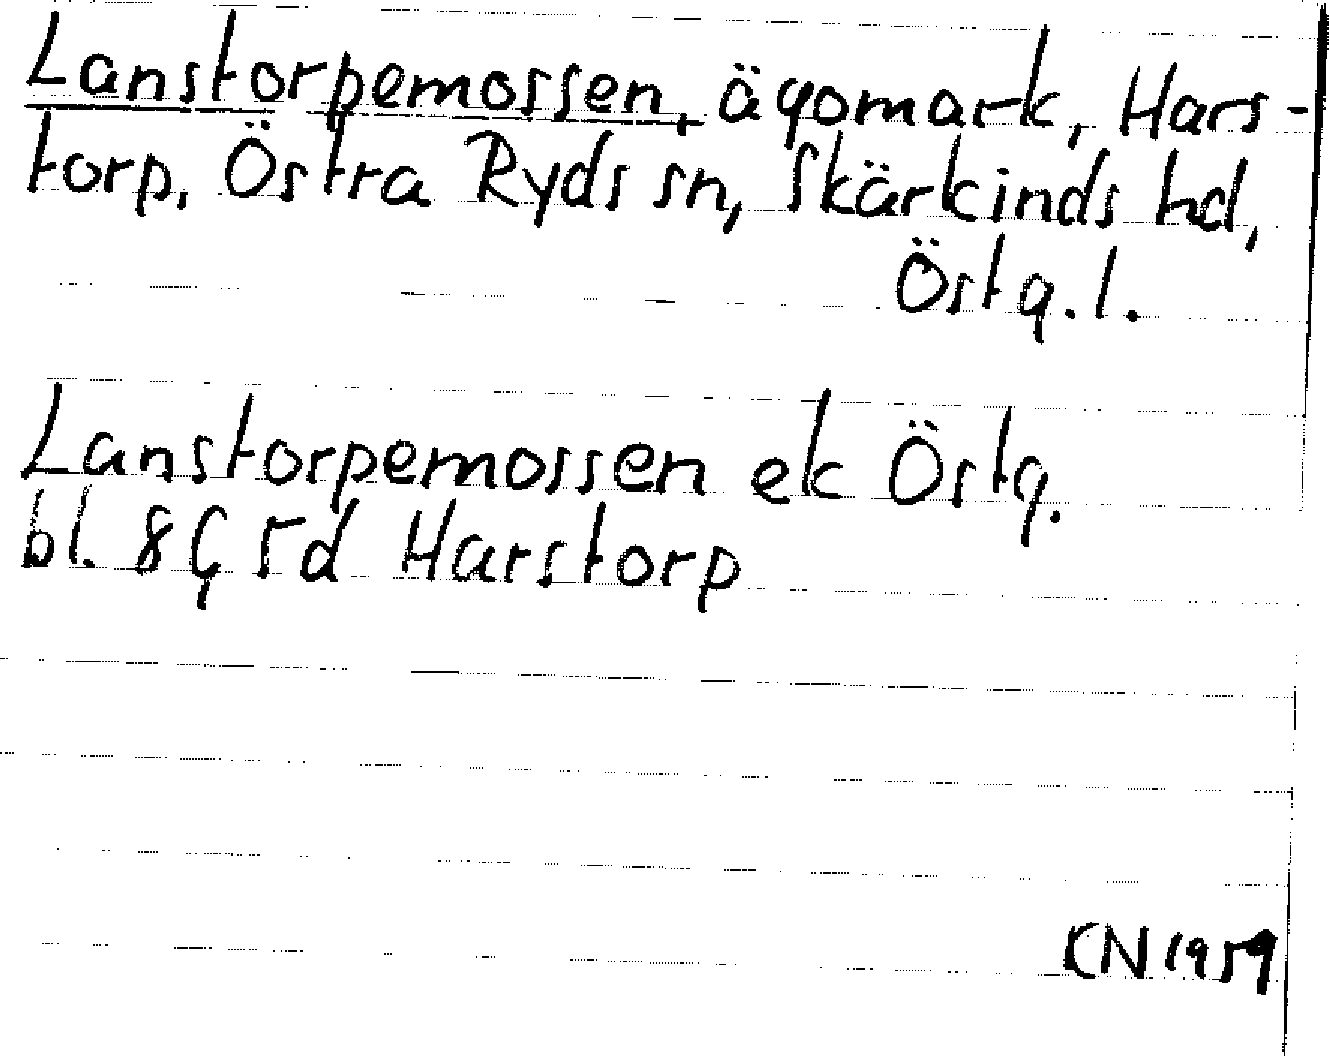 Lanstorpemossen, ägomark, Hars-
torp, Östra Ryds sn, Skärkinds hd,
Östg. l.
Lanstorpemossen ek Östg.
bl. 8G 5d Harstorp
KN 1959